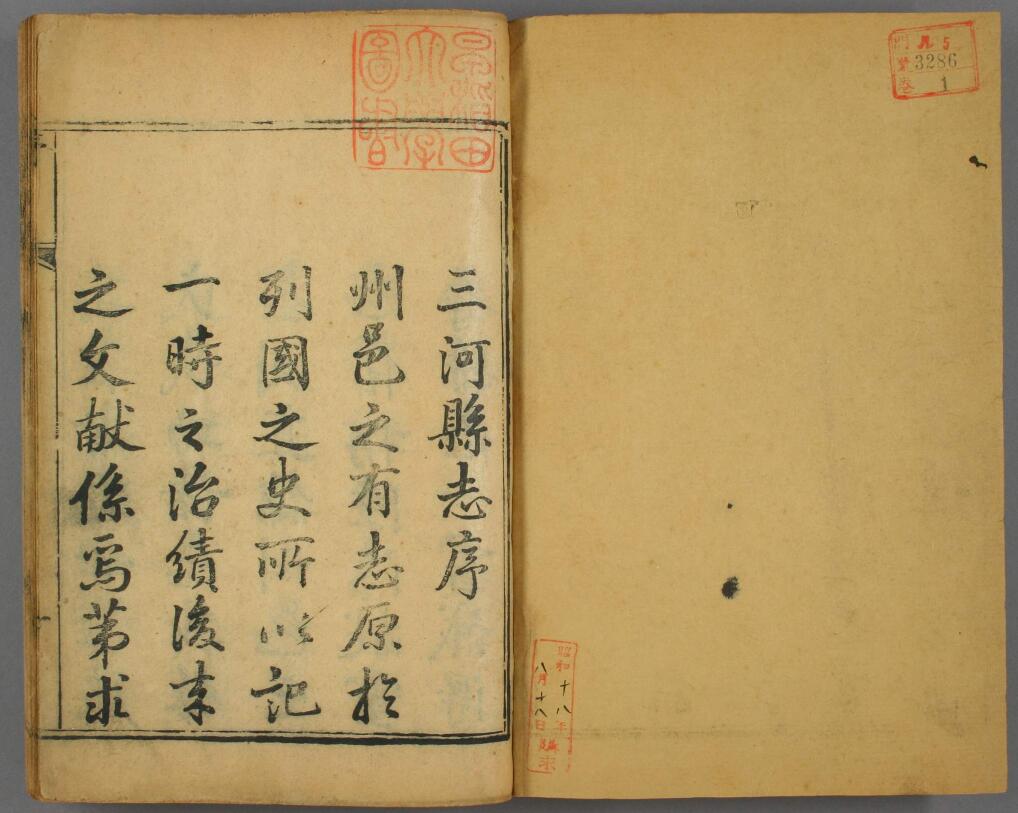 門 ル 5
號 3286
卷 1
昭和十八年
八月十八日購求
早稲田
大學
圖書
三河縣志序
州邑之有志原於
列國之史所以記
一時之治績後来
之文献係焉第求